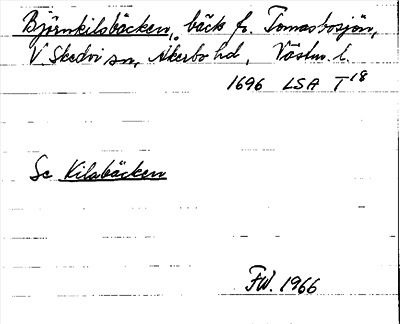 Björnkilsbäcken, bäck fr. Tomasbosjön,
V. Skedvi sn, Åkerbo hd, Västm. l.
1696 LSA T 18
Se Kilsbäcken
FW. 1966